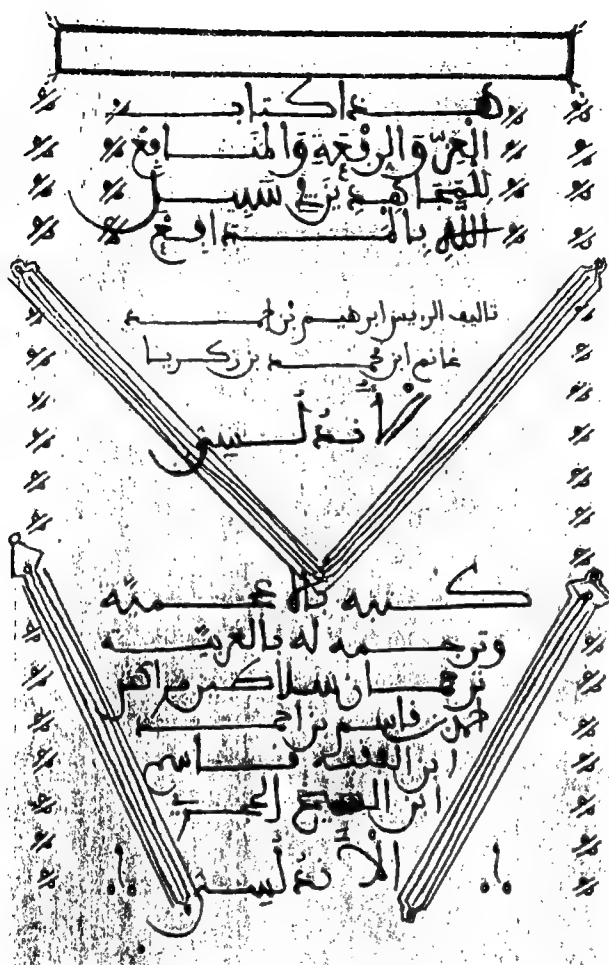 هذا كتاب
الْعِزّ وَالرِفْعَة وَالمَنَافِعْ
لِلْمُجَاهِدِينَ فِي سَبِيلِ
اللّٰهِ بِالْمَدَافِعْ
تاليف الريس ابرهيم بن احمد
غانم ابن محمد بن زكريا
الْأَنْدَلُسِي
كتبه بالأعجمية
وترجمه له بالعربية
ترجمان سلاطين مراكش
احمد بن قاسم بن احمد
ابن الفقيه قاسم
ابن الشيخ الحجري
الْأَنْدَلُسِي